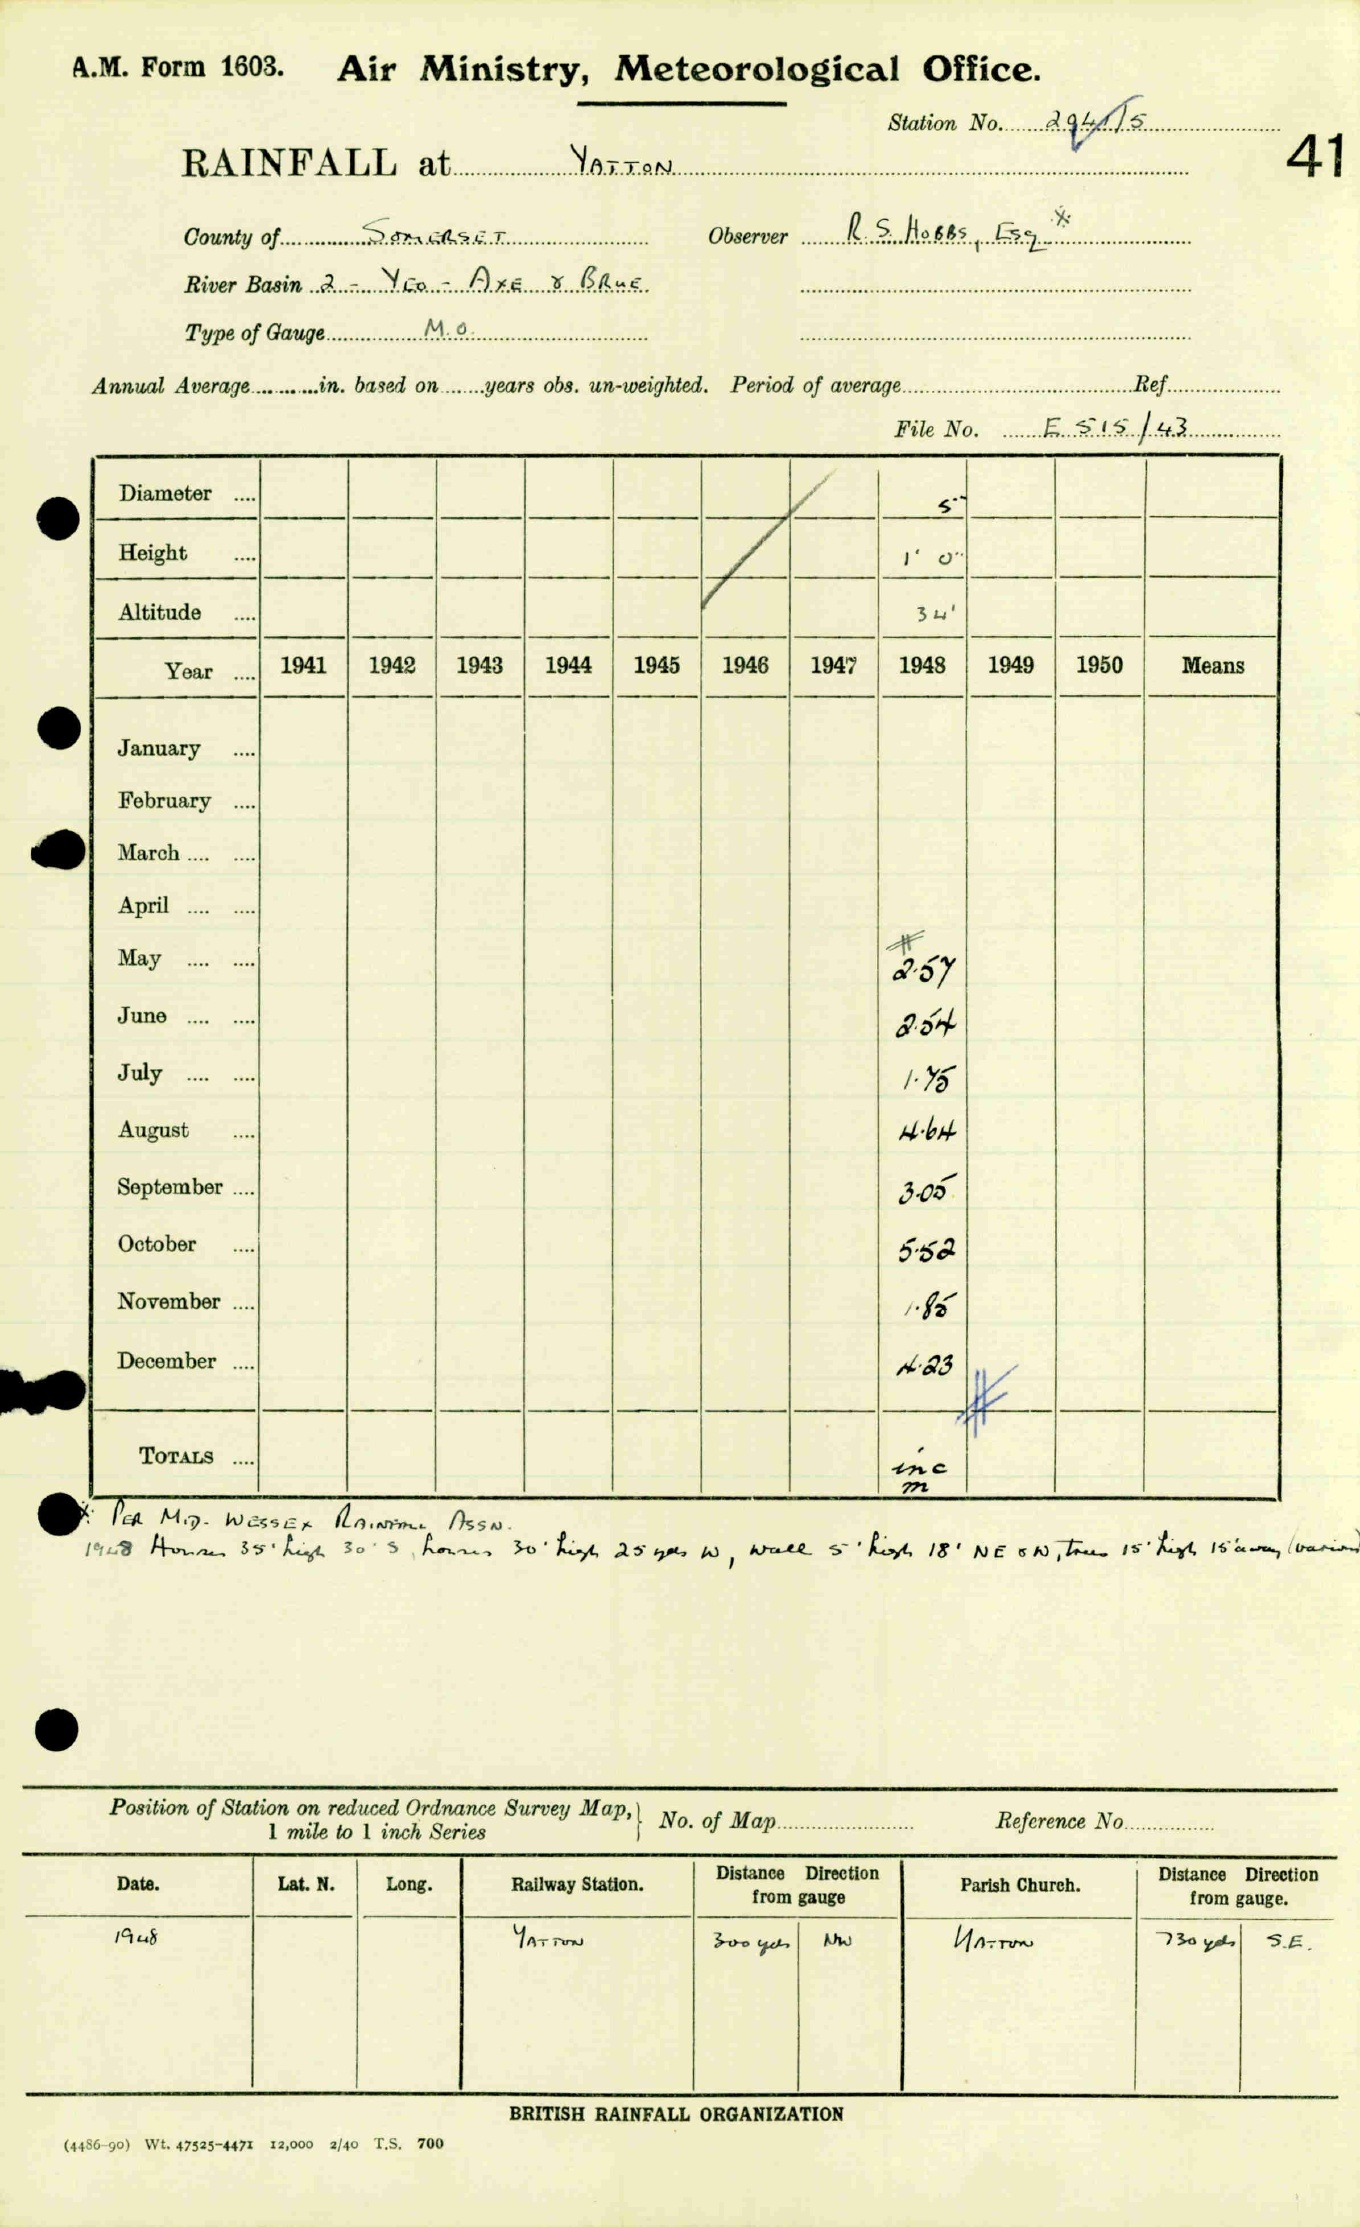 A.M. Form 1603. Air Ministry, Meteorological Office.
Station No. 2941/5
41
RAINFALL at YATTON
County of SOMERSET Observer R.S. HOBBS, Esq *
River Basin 2 - YEO - AXE & BRUE
Type of Gauge M.O.
Annual Average in. based on years obs. un-weighted. Period of average Ref.
File No. E 515/43
Diameter 5"
Height 1' 0"
Altitude 34'
Year 1941 1942 1943 1944 1945 1946 1947 1948 1949 1950 Means
January
February
March
April
May # 2.57
June 2.54
July 1.75
August 4.64
September 3.05
October 5.52
November 1.85
December 4.23
#
TOTALS inc
m
* PER MID. WESSEX RAINFALL ASSN.
1948 Houses 35' high 30' S, houses 30' high 25 yds W, wall 5' high 18' NE & N, trees 15' high 15' away (various)
Position of Station on reduced Ordnance Survey Map, } No. of Map Reference No.
1 mile to 1 inch Series
Date. Lat. N. Long. Railway Station. Distance Direction from gauge Parish Church. Distance Direction from gauge.
1948 YATTON 300 yds NW YATTON 730 yds S.E.
BRITISH RAINFALL ORGANIZATION
(4486-90) Wt. 47525-4471 12,000 2/40 T.S. 700